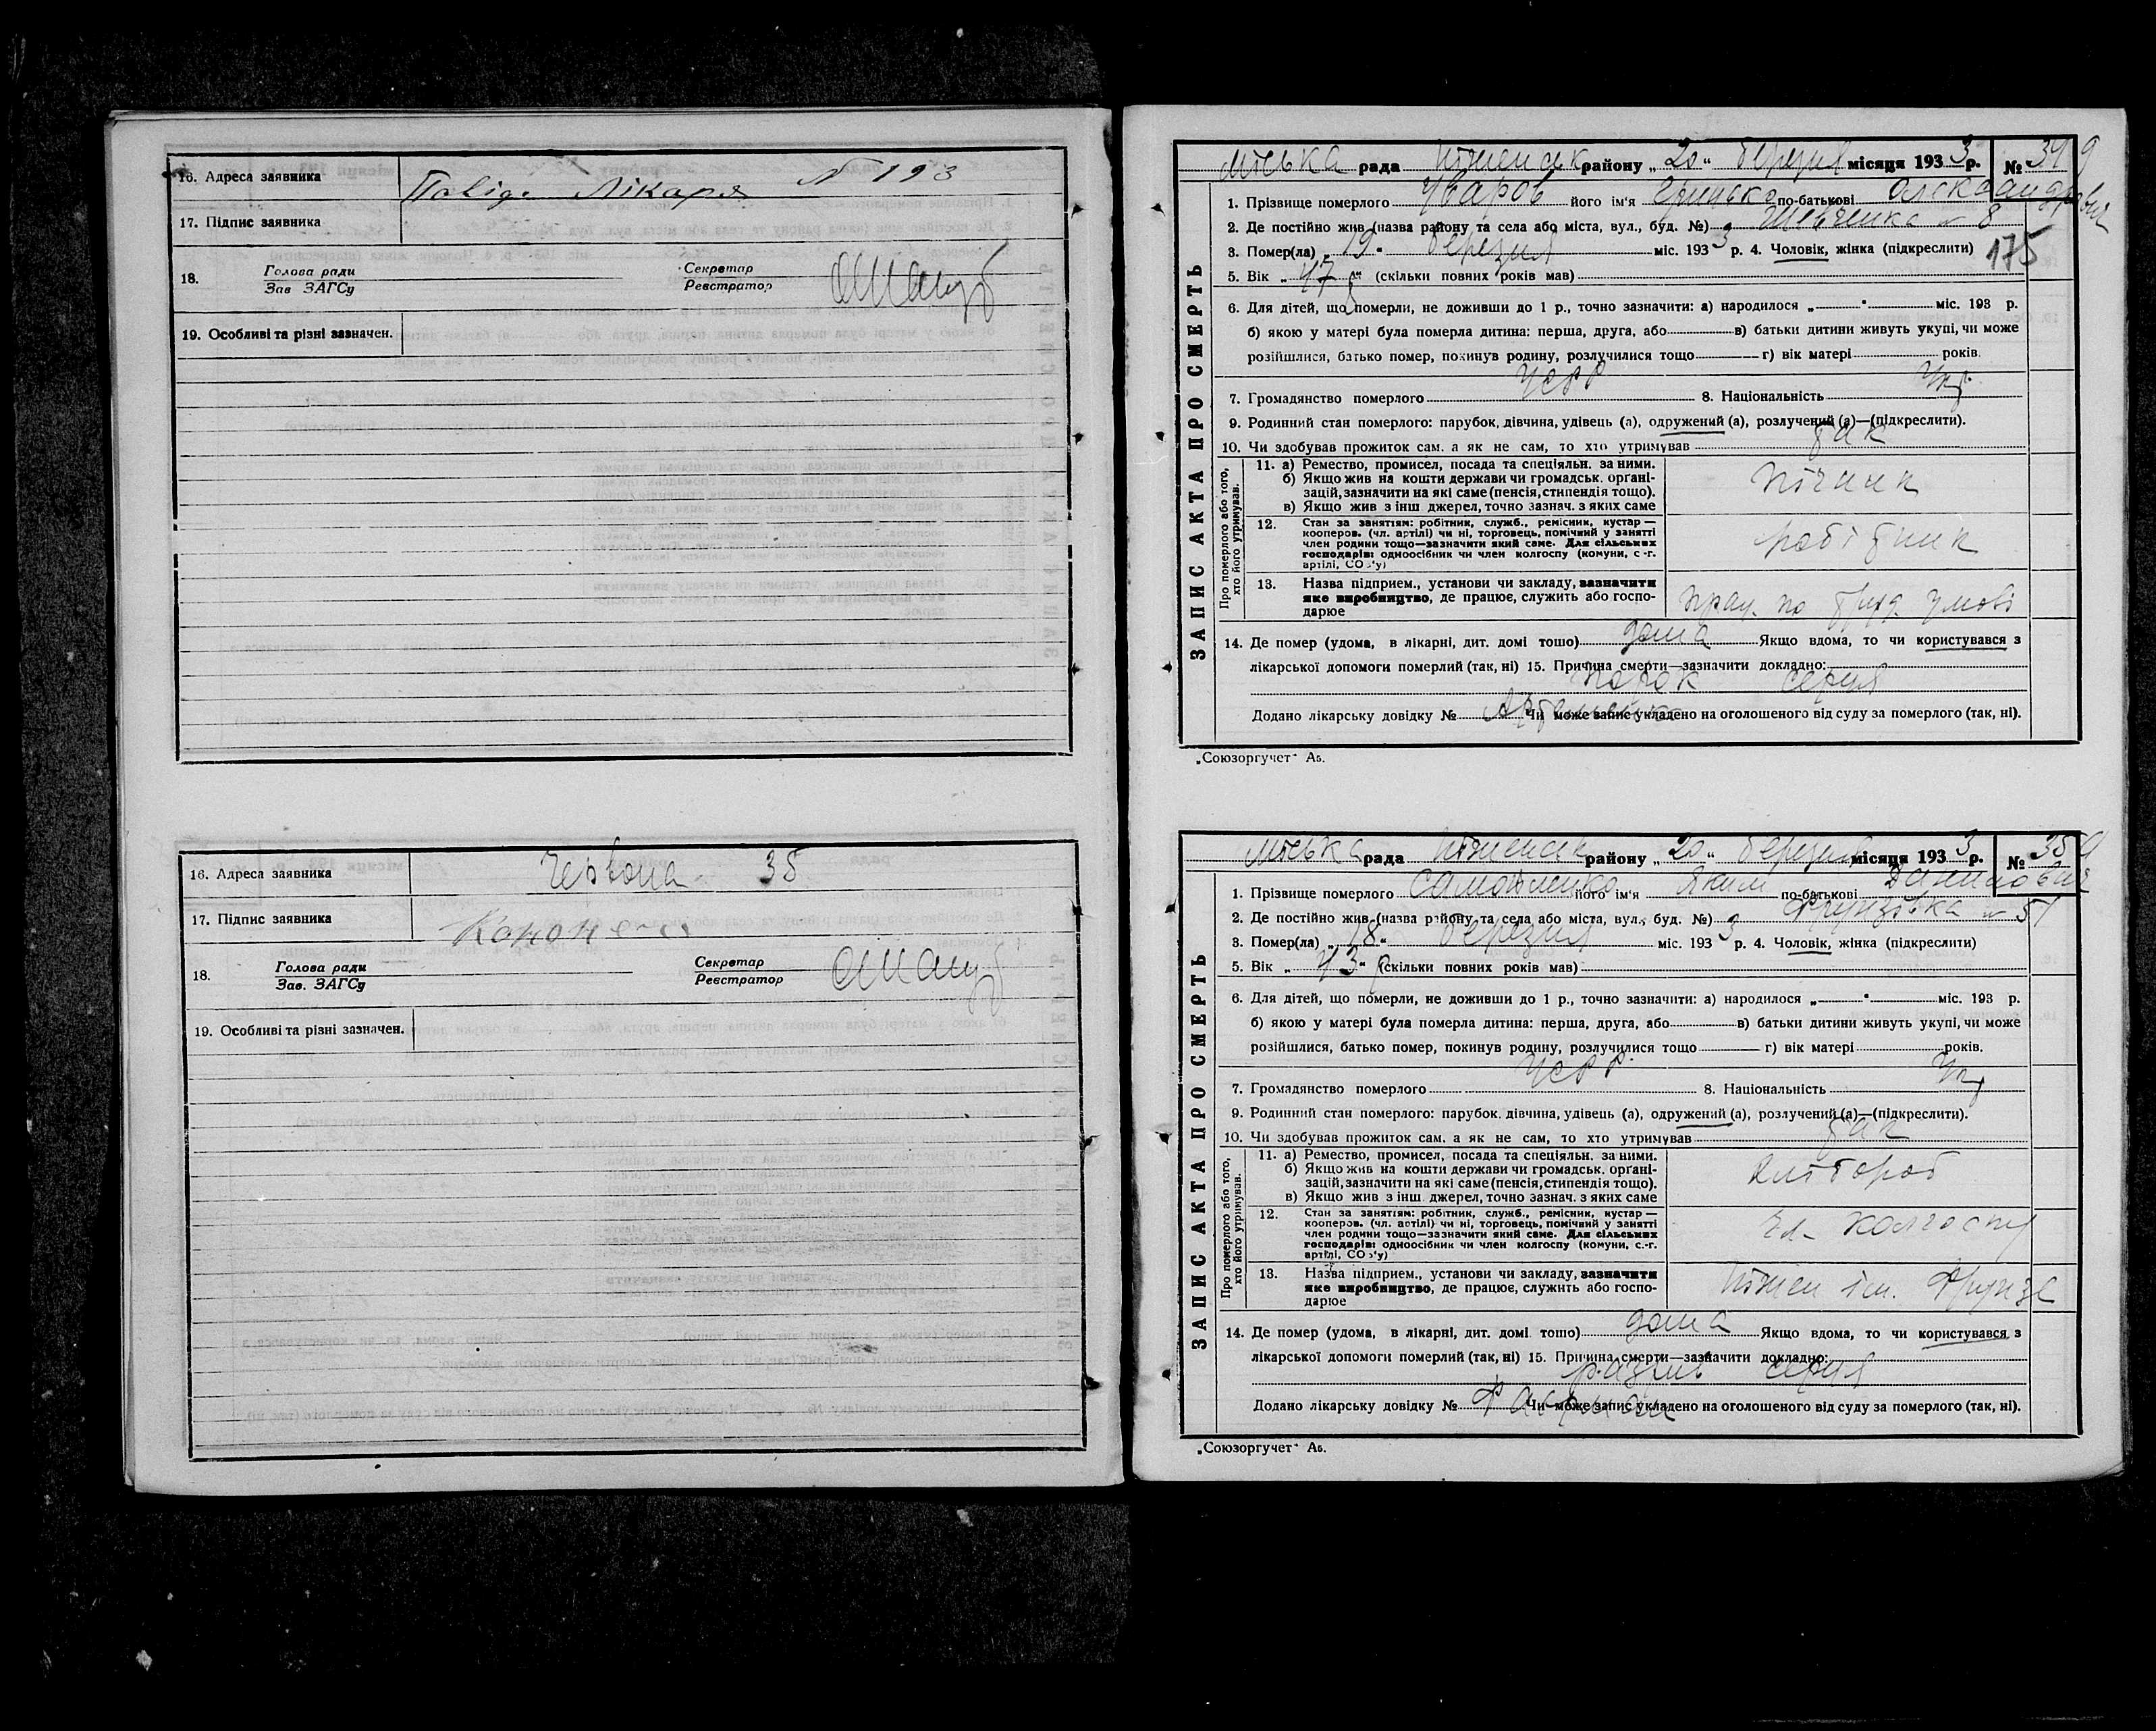 16. Адреса заявника Повід. Лікаря № 193
17. Підпис заявника
18. Голова ради Секретар
Зав ЗАГСу Реєстратор
19. Особливі та різні зазначен.
16. Адреса заявника Червона 35
17. Підпис заявника
18. Голова ради Секретар
Зав. ЗАГСу Реєстратор
19. Особливі та різні зазначен.
ЗАПИС АКТА ПРО СМЕРТЬ
Міська рада Ніженськ району „20“ березня місяця 1933 р. № 349
1. Прізвище померлого Уваров його ім'я по-батькові Олександрович
2. Де постійно жив (назва району та села або міста, вул., буд. №) Шевченка № 8
3. Помер(ла) „19“ березня міс. 1933 р. 4. Чоловік, жінка (підкреслити) 175
5. Вік „47“ (скільки повних років мав)
6. Для дітей, що померли, не доживши до 1 р., точно зазначити: а) народилося „ “ міс. 193 р.
б) якою у матері була померла дитина: перша, друга, або в) батьки дитини живуть укупі, чи може
розійшлися, батько помер, покинув родину, розлучилися тощо г) вік матері років.
7. Громадянство померлого УСРР 8. Національність Укр.
9. Родинний стан померлого: парубок, дівчина, удівець (а), одружений (а), розлучений (а)—(підкреслити).
10. Чи здобував прожиток сам, а як не сам, то хто утримував так
Про померлого або того, хто його утримував.
11. а) Ремество, промисел, посада та спеціяльн. за ними.
б) Якщо жив на кошти держави чи громадськ. органі-
зацій, зазначити на які саме (пенсія, стипендія тощо).
в) Якщо жив з інш джерел, точно зазнач. з яких саме
пічник
12. Стан за заняттям: робітник, служб., ремісник, кустар —
кооперов. (чл. артілі) чи ні, торговець, помічний у занятті
член родини тощо—зазначити який саме. Для сільських
господарів: одноосібник чи член колгоспу (комуни, с.-г.
артілі, СОЗ'у)
робітник
13. Назва підприєм., установи чи закладу, зазначити
яке виробництво, де працює, служить або госпо-
дарює
прац. по труд. умові
14. Де помер (удома, в лікарні, дит. домі тощо) дома Якщо вдома, то чи користувався з
лікарської допомоги померлий (так, ні) 15. Причина смерти—зазначити докладно:
порок серця
Додано лікарську довідку № Артеменко Чи може запис укладено на оголошеного від суду за померлого (так, ні).
„Союзоргучет“ А5.
ЗАПИС АКТА ПРО СМЕРТЬ
Міська рада Ніженськ району „20“ березня місяця 1933 р. № 350
1. Прізвище померлого Самойленко його ім'я Яким по-батькові Данилович
2. Де постійно жив (назва району та села або міста, вул., буд. №) Фрунзівка № 51
3. Помер(ла) „18“ березня міс. 1933 р. 4. Чоловік, жінка (підкреслити)
5. Вік „43“ (скільки повних років мав)
6. Для дітей, що померли, не доживши до 1 р., точно зазначити: а) народилося „ “ міс. 193 р.
б) якою у матері була померла дитина: перша, друга, або в) батьки дитини живуть укупі, чи може
розійшлися, батько помер, покинув родину, розлучилися тощо г) вік матері років.
7. Громадянство померлого УСРР 8. Національність Укр
9. Родинний стан померлого: парубок, дівчина, удівець (а), одружений (а), розлучений (а)—(підкреслити).
10. Чи здобував прожиток сам, а як не сам, то хто утримував так
Про померлого або того, хто його утримував.
11. а) Ремество, промисел, посада та спеціяльн. за ними.
б) Якщо жив на кошти держави чи громадськ. органі-
зацій, зазначити на які саме (пенсія, стипендія тощо).
в) Якщо жив з інш джерел, точно зазнач. з яких саме
хлібороб
12. Стан за заняттям: робітник, служб., ремісник, кустар —
кооперов. (чл. артілі) чи ні, торговець, помічний у занятті
член родини тощо—зазначити який саме. Для сільських
господарів: одноосібник чи член колгоспу (комуни, с.-г.
артілі, СОЗ'у)
чл. колгоспу
13. Назва підприєм., установи чи закладу, зазначити
яке виробництво, де працює, служить або госпо-
дарює
Ніжен ім. Фрунзе
14. Де помер (удома, в лікарні, дит. домі тощо) дома Якщо вдома, то чи користувався з
лікарської допомоги померлий (так, ні) 15. Причина смерти—зазначити докладно:
серця
Додано лікарську довідку № Чи може запис укладено на оголошеного від суду за померлого (так, ні).
„Союзоргучет“ А5.